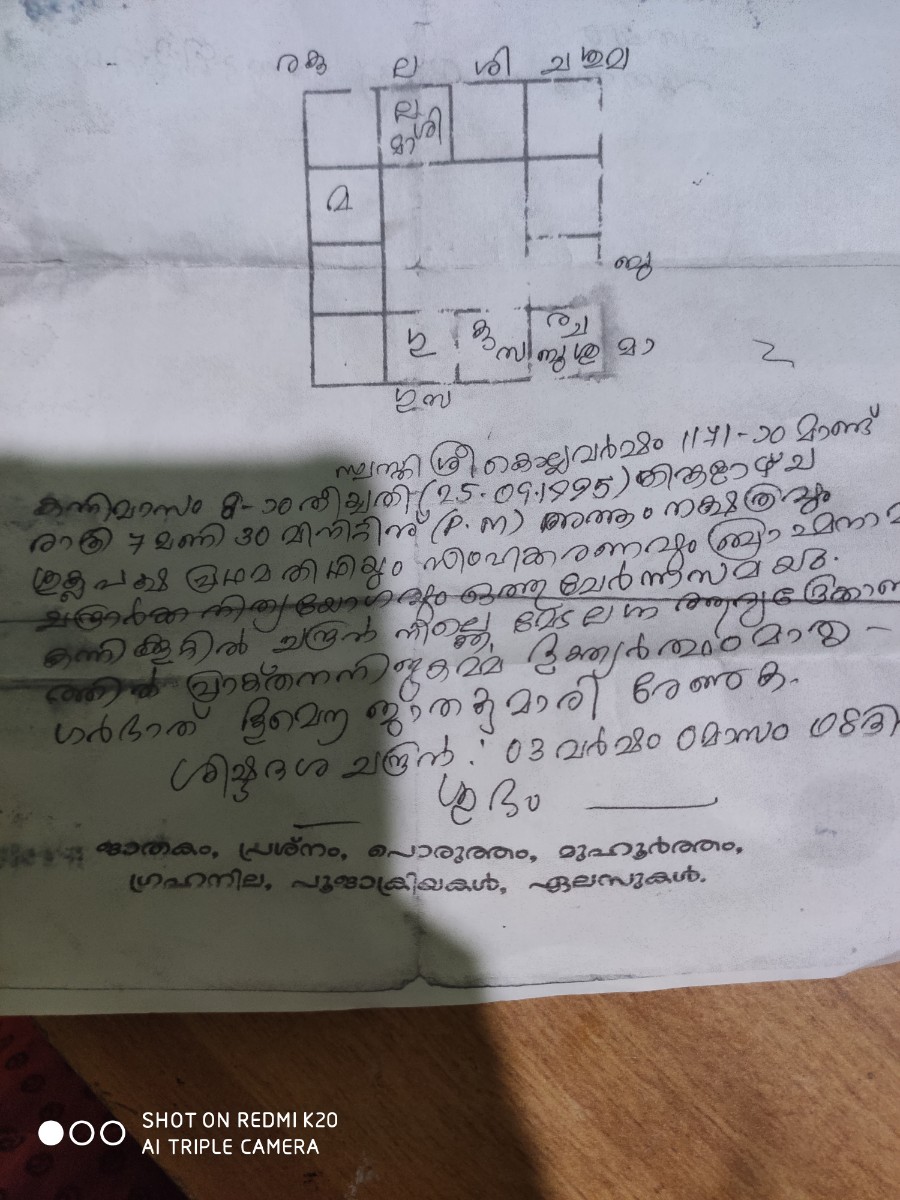 രകു ല ശി ച ശുമ
ല
മാ ശി
മ
ബു
ഗു കു സ ര ച
ബു ശു മാ
ഗു സ
സ്വസ്തി ശ്രീ കൊല്ലവർഷം 1171-ാം മാണ്ട്
കന്നിമാസം 8-ാം തീയ്യതി (25.09.1995) തിങ്കളാഴ്ച
രാത്രി 7 മണി 30 മിനിട്ടിന് (P.M) അത്തം നക്ഷത്രവും
ശുക്ലപക്ഷ പ്രഥമ തിഥിയും സിംഹക്കരണവും ബ്രാഹ്മനാമ
നിത്യയോഗവും ഒത്തു ചേർന്ന സമയം
കന്നിക്കൂറിൽ ചന്ദ്രൻ നില്ക്കെ മേടലഗ്ന ആദ്യദ്രേക്കാണ
ത്തിൽ
ഗർഭാത് ജാത കുമാരി രേണുക.
ശിഷ്ടദശ ചന്ദ്രൻ : 03 വർഷം 0 മാസം 08 ദി
ശുഭം
ജാതകം, പ്രശ്നം, പൊരുത്തം, മുഹൂർത്തം,
ഗ്രഹനില, പൂജാക്രിയകൾ, ഏലസുകൾ.
SHOT ON REDMI K20
AI TRIPLE CAMERA